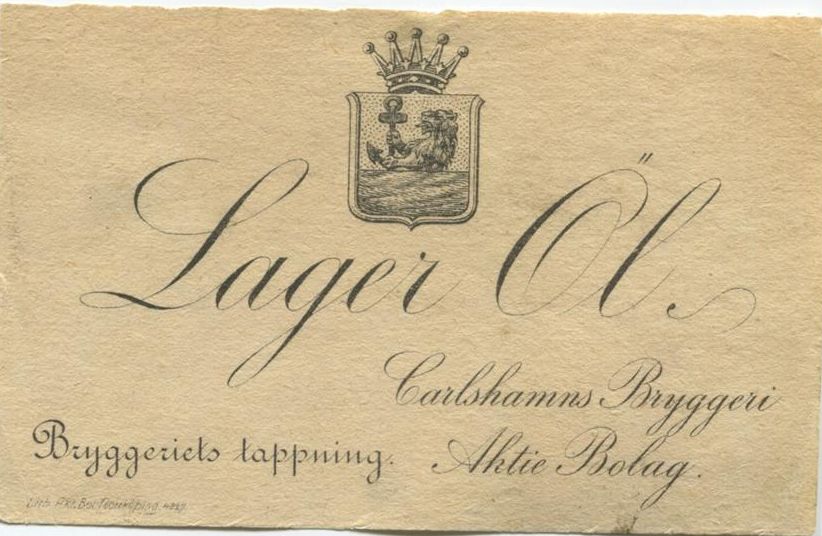 Lager Öl.
Carlshamns Bryggeri
Aktie Bolag.
Bryggeriets tappning.
Lith. Akt. Bol.